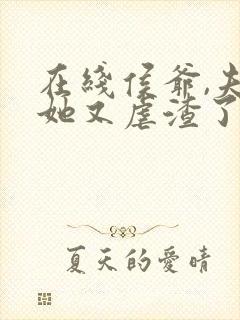 在线侯爷,夫
她又虐渣了
夏天的爱晴